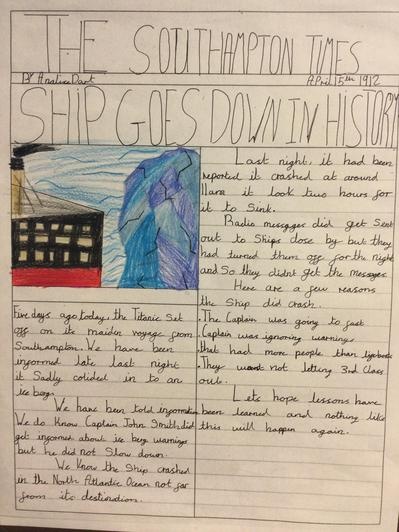 THE SOUTHAMPTON TIMES
By Analise Dart
April 15th 1912
SHIP GOES DOWN IN HISTORY
Last night, it had been
reported it crashed at around
11am it look two hours for
it to Sink.
Radio messages did get Sent
out to Ships close by but they
had turned them off for the night
and So they didnt get the messages.
Here are a few reasons
the Ship did crash.
.The Captain was going to fast
.Captain was ignoring warnings
.that had more people than lifeboats
.They want not letting 3rd Class
out.
Lets hope lessons have
been learned and nothing like
this will happen again.
Five days ago today, the Titanic Set
off on its maiden voyage from
Southampton. We have been
informed late last night
it Sadly colided in to an
ice berg.
We have been told information
We do Know Captain John Smith did
get informed about ice berg warnings
but he did not Slow down.
We Know the Ship crashed
in the North Atlantic Ocean not far
from its destination.